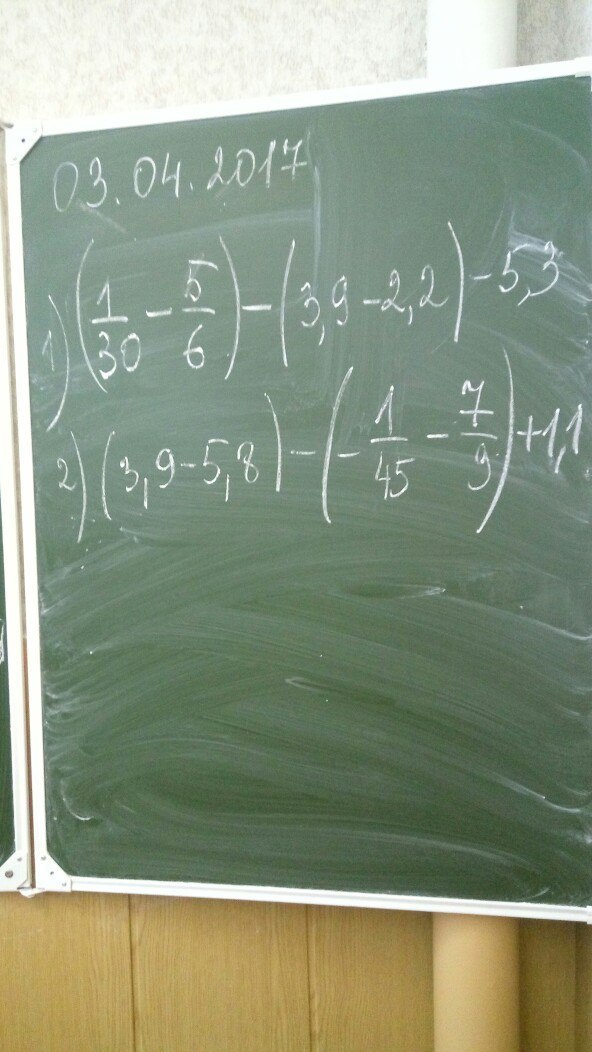 03.04.2017
1) (1/30 - 5/6) - (3,9 - 2,2) - 5,3
2) (3,9 - 5,8) - (- 1/45 - 7/9) + 1,1